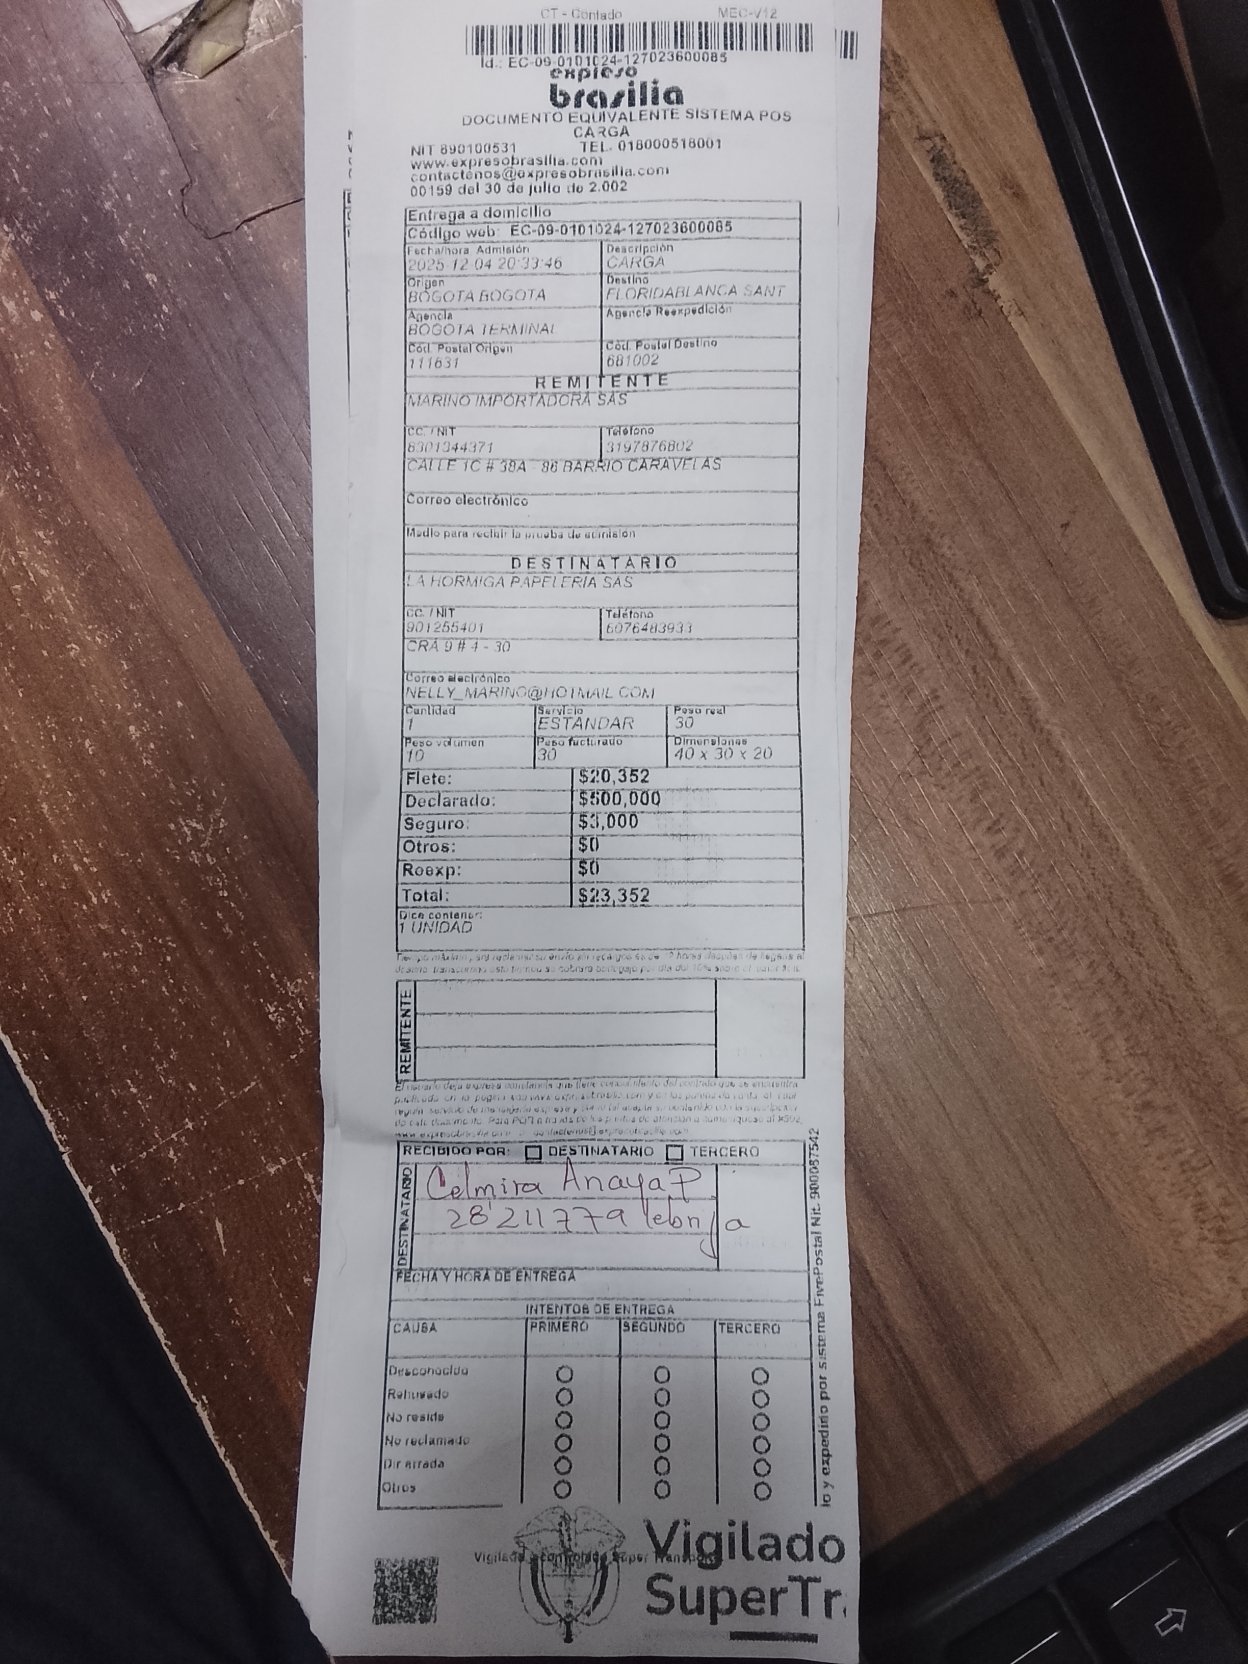 CT - Contado MEC-V12
Id.: EC-09-0101024-127023600085
expreso
brasilia
DOCUMENTO EQUIVALENTE SISTEMA POS
CARGA
NIT 890100531 TEL. 018000518001
www.expresobrasilia.com
contactenos@expresobrasilia.com
00159 del 30 de julio de 2.002
Entrega a domicilio
Código web: EC-09-0101024-127023600085
Fecha/hora Admisión Descripción
2025-12-04 20:33:46 CARGA
Origen Destino
BOGOTA BOGOTA FLORIDABLANCA SANT
Agencia Agencia Reexpedición
BOGOTA TERMINAL
Cód. Postal Origen Cód. Postal Destino
111631 681002
REMITENTE
MARINO IMPORTADORA SAS
CC. / NIT Teléfono
8301344371 3197876802
CALLE 1C # 38A - 86 BARRIO CARAVELAS
Correo electrónico
Medio para recibir la prueba de admisión
DESTINATARIO
LA HORMIGA PAPELERIA SAS
CC. / NIT Teléfono
901255401 6076483933
CRA 9 # 4 - 30
Correo electrónico
NELLY_MARINO@HOTMAIL.COM
Cantidad Servicio Peso real
1 ESTANDAR 30
Peso volumen Peso facturado Dimensiones
10 30 40 x 30 x 20
Flete: $20,352
Declarado: $500,000
Seguro: $3,000
Otros: $0
Reexp: $0
Total: $23,352
Dice contener:
1 UNIDAD
REMITENTE
RECIBIDO POR: DESTINATARIO TERCERO
DESTINATARIO
Celmira Anaya P.
28'211779 lebrija
FECHA Y HORA DE ENTREGA
INTENTOS DE ENTREGA
CAUSA PRIMERO SEGUNDO TERCERO
Desconocido
Rehusado
No reside
No reclamado
Dir errada
Otros
lo y expedido por sistema FivePostal Nit. 900087542
Vigilado
SuperTr